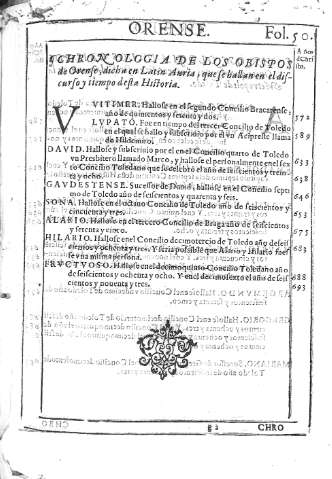 ORENSE.
Fol. 50.
CHRONOLOGIA DE LOS OBISPOS
de Orense, dicha en Latin Auria, que se hallan en el dis-
curso y tiempo desta Historia.
VVITIMER, Hallose en el segundo Concilio Bracarense,
año de quinientos y setenta y dos. 572
LVPATO, Fue en tiempo del tercer Concilio de Toledo
en el qual se hallo y subscrivio por el vn Acipreste llama
do Hildemiro. 589
DAVID, Hallose y subscrivio por el en el Concilio quarto de Toledo
vn Presbitero llamado Marco, y hallose el personalmente en el sex
to Concilio Toledano que se celebrò el año de seiscientos y trein-
ta y ocho. 633
638
GAVDESTENSE, Sucessor de David, hallose en el Concilio septi
mo de Toledo año de seiscientos y quarenta y seis. 646
SONA, Hallose en el octavo Concilio de Toledo año de seiscientos y
cincuenta y tres. 653
ALARIO, Hallose en el tercero Concilio de Braga año de seiscientos
y setenta y cinco. 675
HILARIO, Hallose en el Concilio decimotercio de Toledo año de seis
cientos y ochenta y tres. Y seria possible que Alario y Hilario fues
se vna misma persona. 683
FRVCTVOSO, Hallose en el decimoquinto Concilio Toledano año
de seiscientos y ochenta y ocho. Y en el decimosexto el año de seis
cientos y nouenta y tres. 688
693
g 2 CHRO